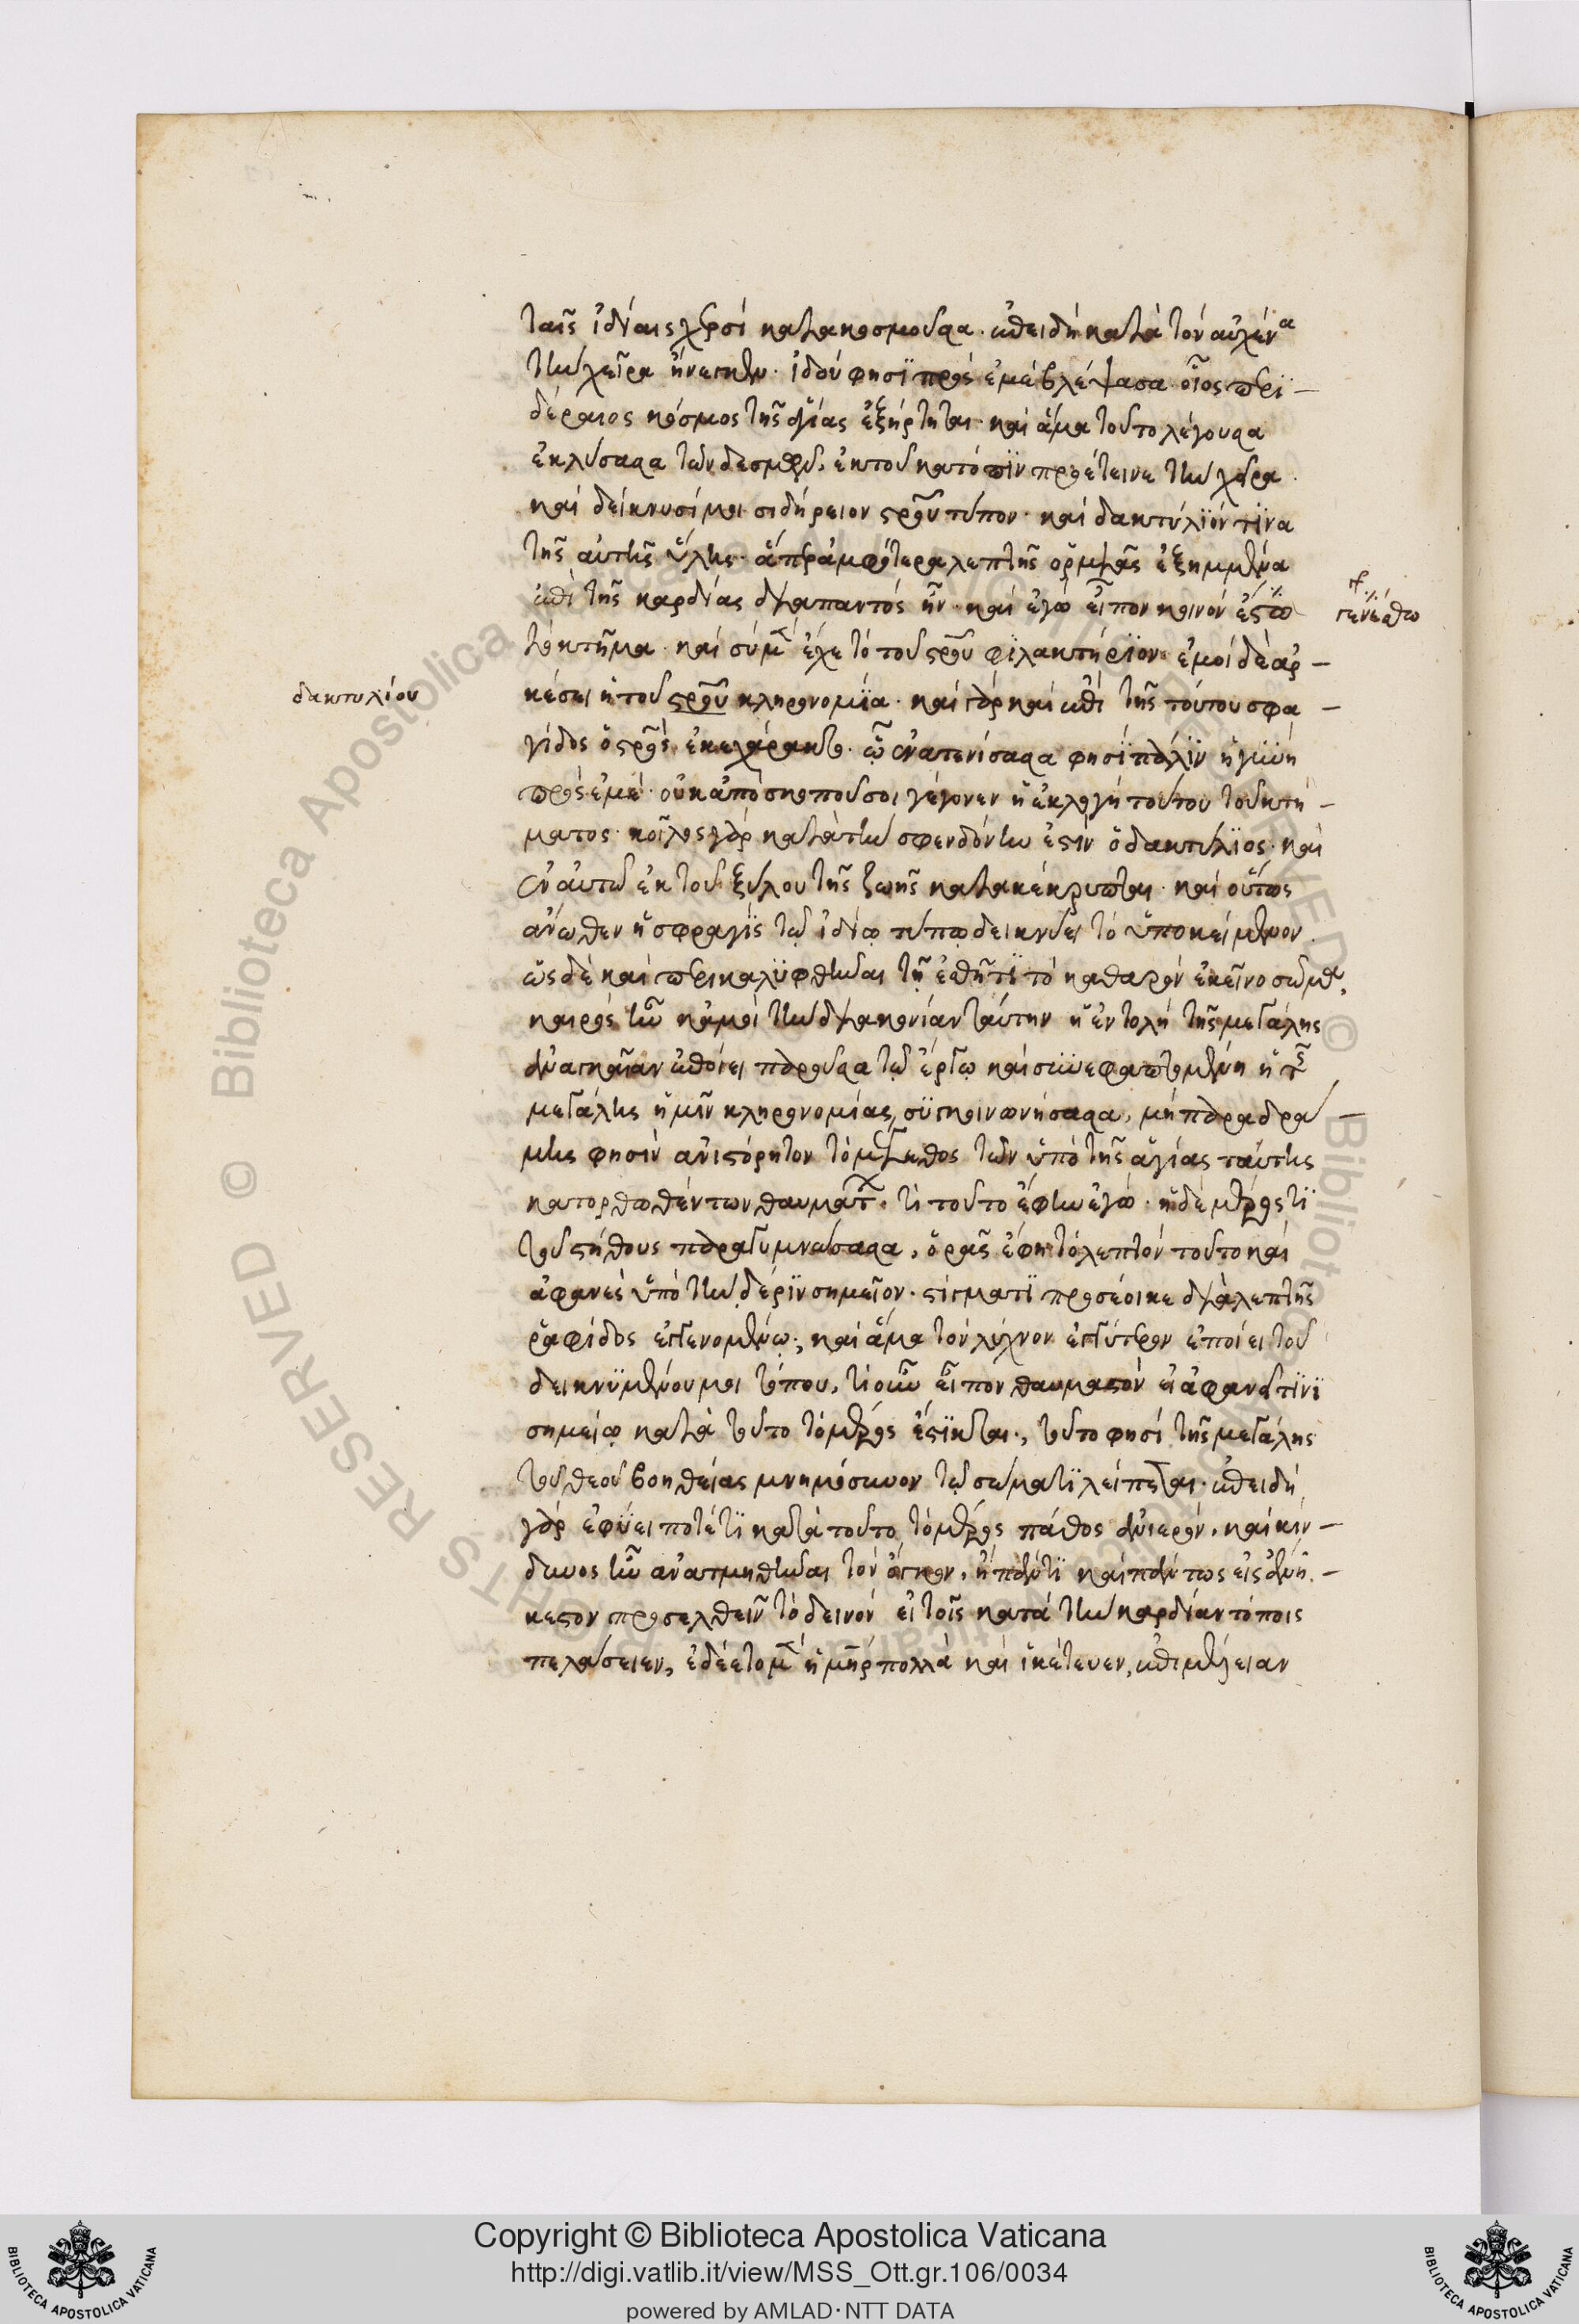 ταῖς ἰδίαις χερσὶ κατακοσμοῦσα. ἐπειδὴ κατὰ τὸν αὐχένα
τὴν χεῖρα ἤνεγκεν. ἰδού φησϊ πρός ἐμὲ βλέψασα οἷος περϊ–
δέραιος κόσμος τῆς ἁγίας ἐξήρτηται. καὶ ἅμα τοῦτο λέγουσα
ἐκλύσασα τὸν δεσμὸν, ἐκ τοῦ κατόπϊν προέτεινε τὴν χεῖρα.
καὶ δείκνυσί μοι σιδήρειον σροῦ τύπον. καὶ δακτύλϊόν τϊνα
τῆς αὐτῆς ὕλης. ἅπερ ἀμφότερα λεπτῆς ὁρμιᾶς ἐξημμένα
ἐπὶ τῆς καρδίας διαπαντός ἦν. καὶ ἐγὼ εἶπον κοινόν ἔστω
γενέσθω
τὸ κτῆμα. καὶ σὺ μὲν ἔχε τὸ τοῦ σροῦ φϊλακτήρϊον. ἐμοὶ δὲ ἀρ–
δακτυλίου
κέσει ἡ τοῦ σροῦ κληρονομϊα. καὶ γὰρ καὶ ἐπὶ τῆς τούτου σφα–
γίδος ὁ σρός ἐκεχάρακτο. ᾧ ἐνατενίσασα φησϊ πάλϊν ἡ γυνή
πρός ἐμέ. οὐκ ἀπὸ σκοποῦ σοι γέγονεν ἡ ἐκλογή τούτου τοῦ κτή–
ματος. κοῖλος γὰρ κατὰ τὴν σφενδόνην ἐστὶν ὁ δακτύλϊος. καὶ
ἐν αὐτῷ ἐκ τοῦ ξύλου τῆς ζωῆς κατακέκρυπται. καὶ οὕτως
ἄνωθεν ἡ σφραγϊς τῷ ἰδίῳ τύπῳ δεικνύει τὸ ὑποκείμενον.
ὡς δὲ καὶ περικαλϋφθῆναι τῇ ἐσθῆτϊ τὸ καθαρόν ἐκεῖνο σῶμα,
καιρός ἦν κἀμοὶ τὴν διακονίαν ταύτην ἡ ἐντολή τῆς μεγάλης
ἀναγκαῖαν ἐποίει παροῦσα τῷ ἔργῳ καὶ συνεφαπτομένη ἡ τῆς
μεγάλης ἡμῖν κληρονομίας, συγκοινωνήσασα, μὴ παραδρά–
μῃς φησὶν ἀνιστόρητον τὸ μέγεθος τῶν ὑπὸ τῆς ἁγίας ταύτης
κατορθωθέντων θαυμάτων. τί τοῦτο ἔφην ἐγώ. ἡ δὲ μέρος τϊ
τοῦ στήθους παραγυμνώσασα, ὁρᾷς ἔφη τὸ λεπτόν τοῦτο καὶ
ἀφανές ὑπὸ τὴν δέρϊν σημεῖον. στίγματϊ προσέοικε διὰ λεπτῆς
ῥαφίδος ἐγγενομένῳ; καὶ ἅμα τὸν λύχνον ἐγγύτερον ἐποίει τοῦ
δεικνϋμένου μοι τόπου, τί οὖν εἶπον θαυμαστὸν εἰ ἀφανεῖ τϊνϊ
σημείῳ κατὰ τοῦτο τὸ μέρος ἔστϊκται; τοῦτο φησὶ τῆς μεγάλης
τοῦ θεοῦ βοηθείας μνημόσυνον τῷ σώματϊ λείπεται. ἐπειδή
γὰρ ἐφύει ποτέ τϊ κατὰ τοῦτο τὸ μέρος πάθος ἀνιερόν, καὶ κίν–
δυνος ἦν ἀνατμηθῆναι τὸν ὄγκον, ἢ πάντϊ καὶ πάντως εἰς ἀνή–
κεστον προσελθεῖν τὸ δεινόν εἰ τοῖς κατὰ τὴν καρδίαν τόποις
πελάσειεν, ἐδέετο μὲν ἡ μῆρ πολλὰ καὶ ἱκέτευεν, ἐπιμέλειαν